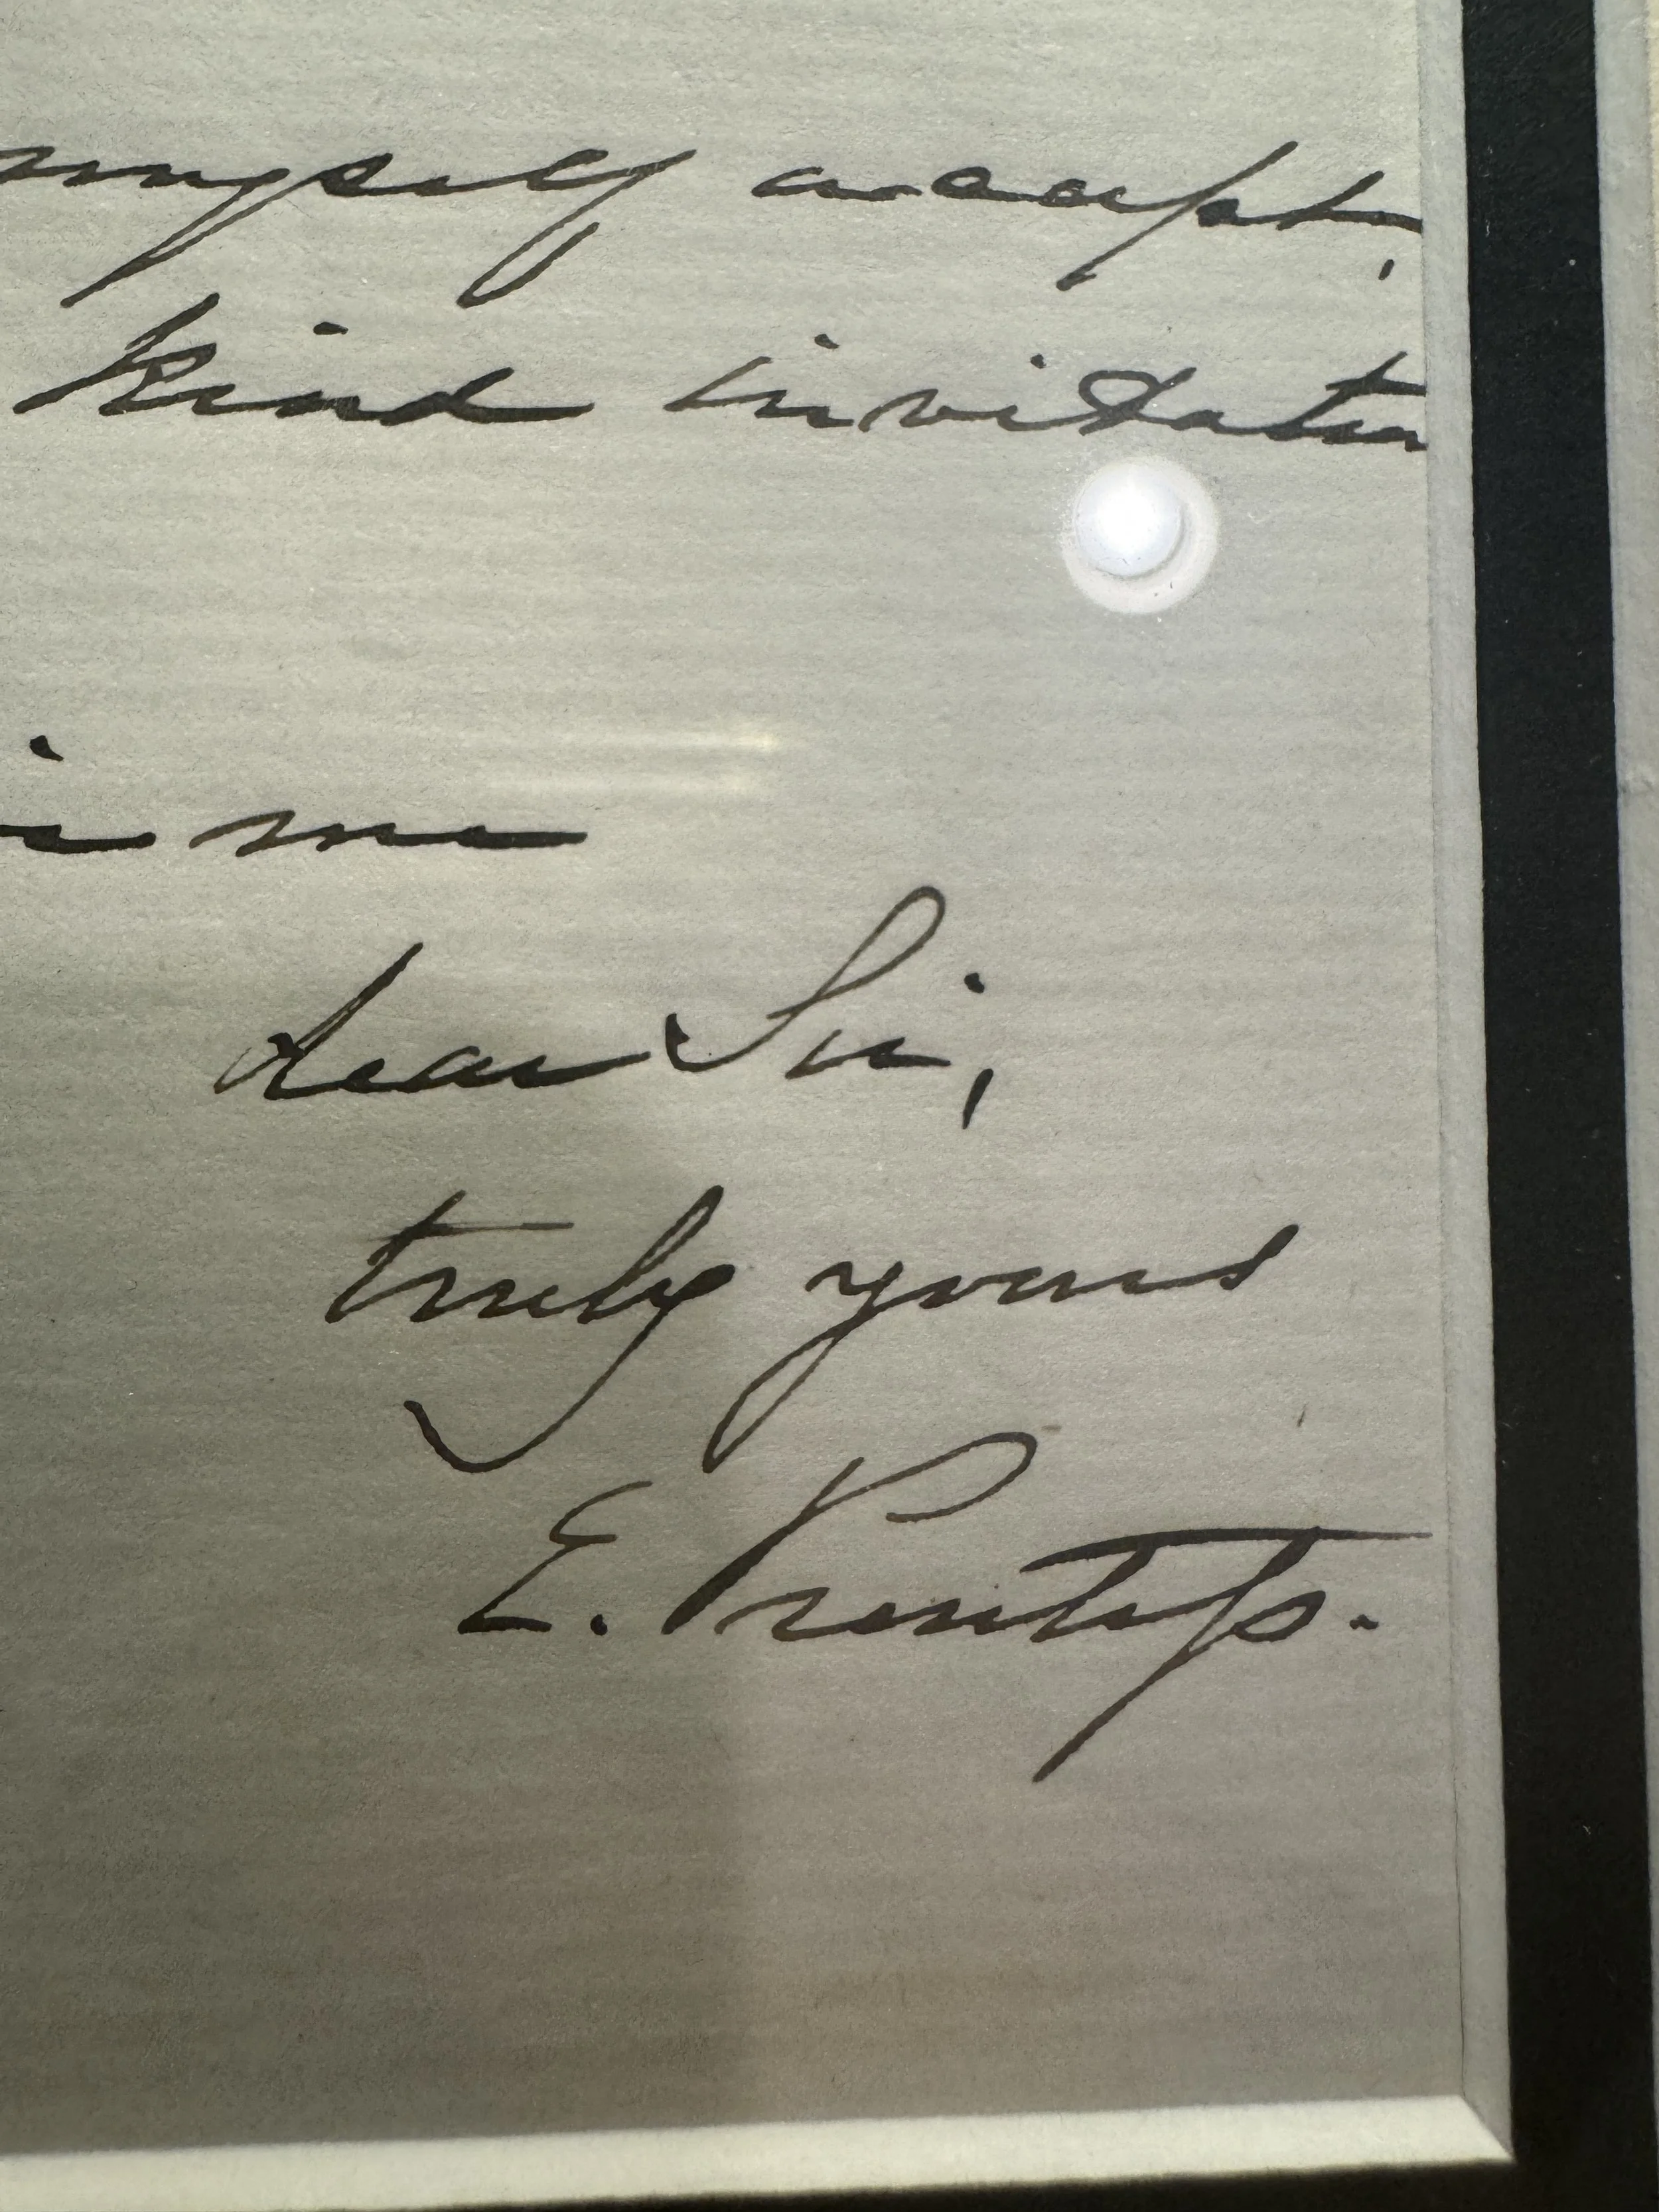 myself accept,
kind invitation
me
dear Sir,
truly yours
E.